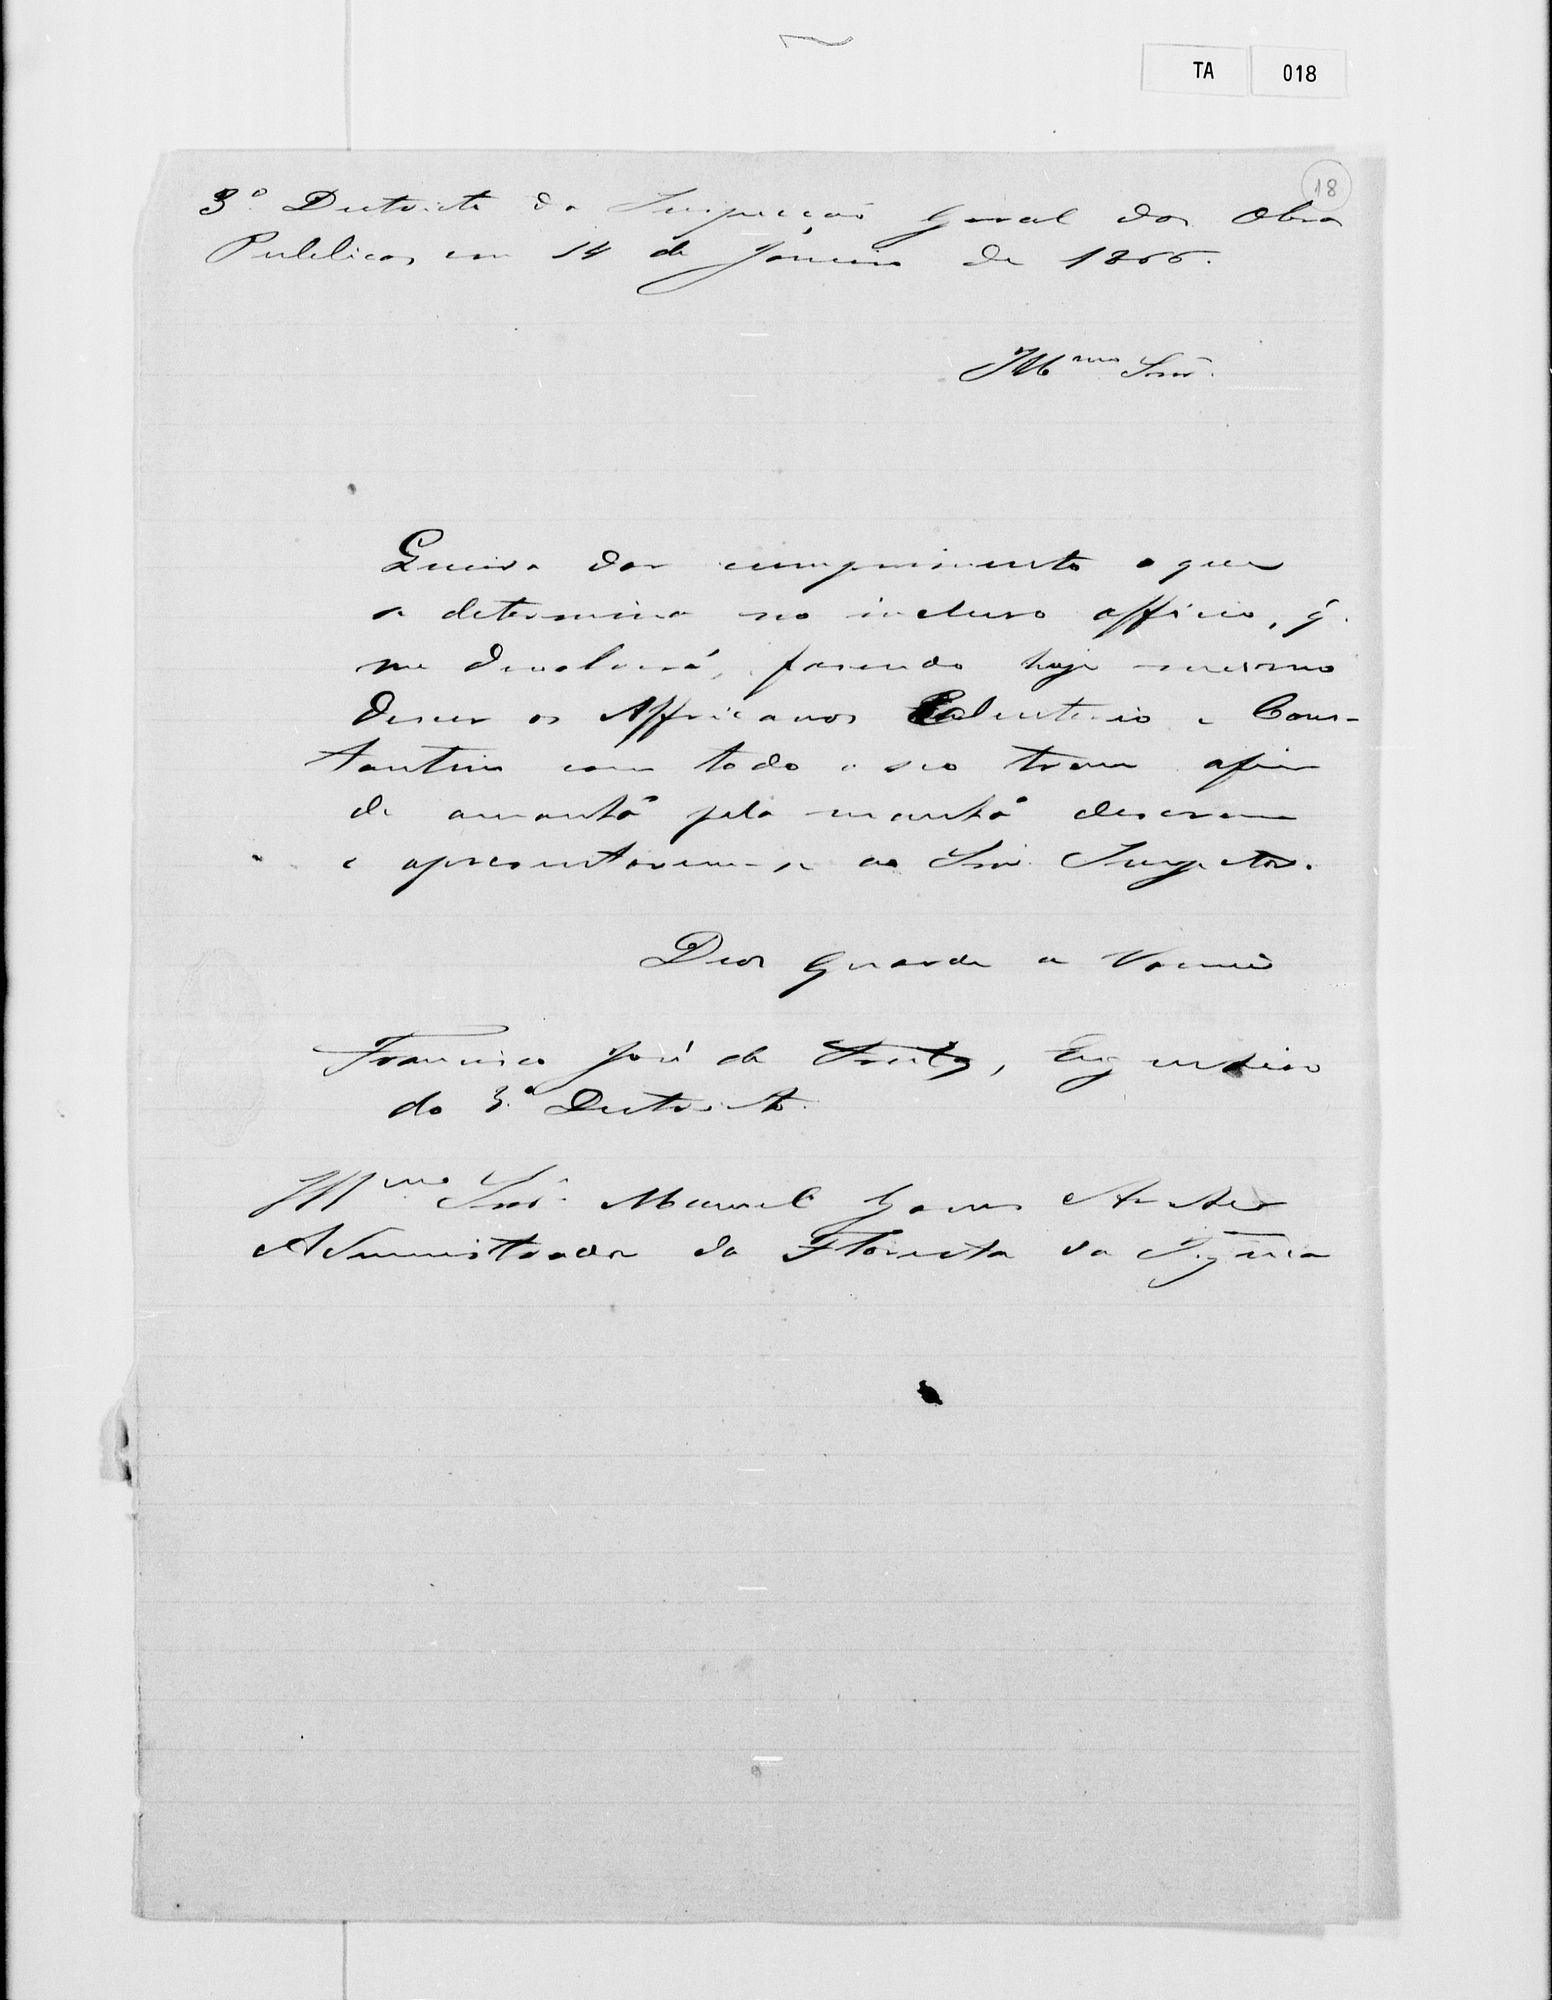 TA 018
18
3º Districto da Inspecção Geral das Obras
Publicas em 14 de Janeiro de 1866.
Illmo Snr.
Queira dar cumprimento o que
se determina no incluso officio, q.
me devolverá, fasendo hoje mesmo
descer os Affricanos e Cons-
tantino com todo o seo trem afim
de amanhã pela manhã descerem
e apresentarem-se ao Snr. Inspector.
Deos Guarde a Vmcê
Francisco José de Freitas, Engenheiro
do 3º Districto.
Illmo Snr. Manoel Gomes Archer
Administrador da Floresta da Tijuca